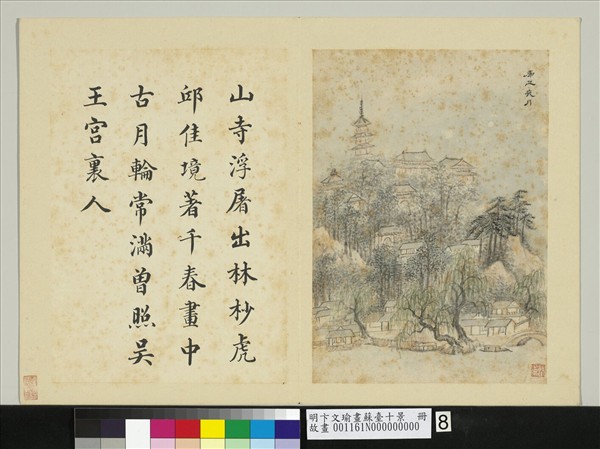 山寺浮屠出林杪虎
邱佳境著千春畫中
古月輪常滿曾照吳
王宮裏人
明卞文瑜畫蘇臺十景 冊
故畫 001161N000000000
8